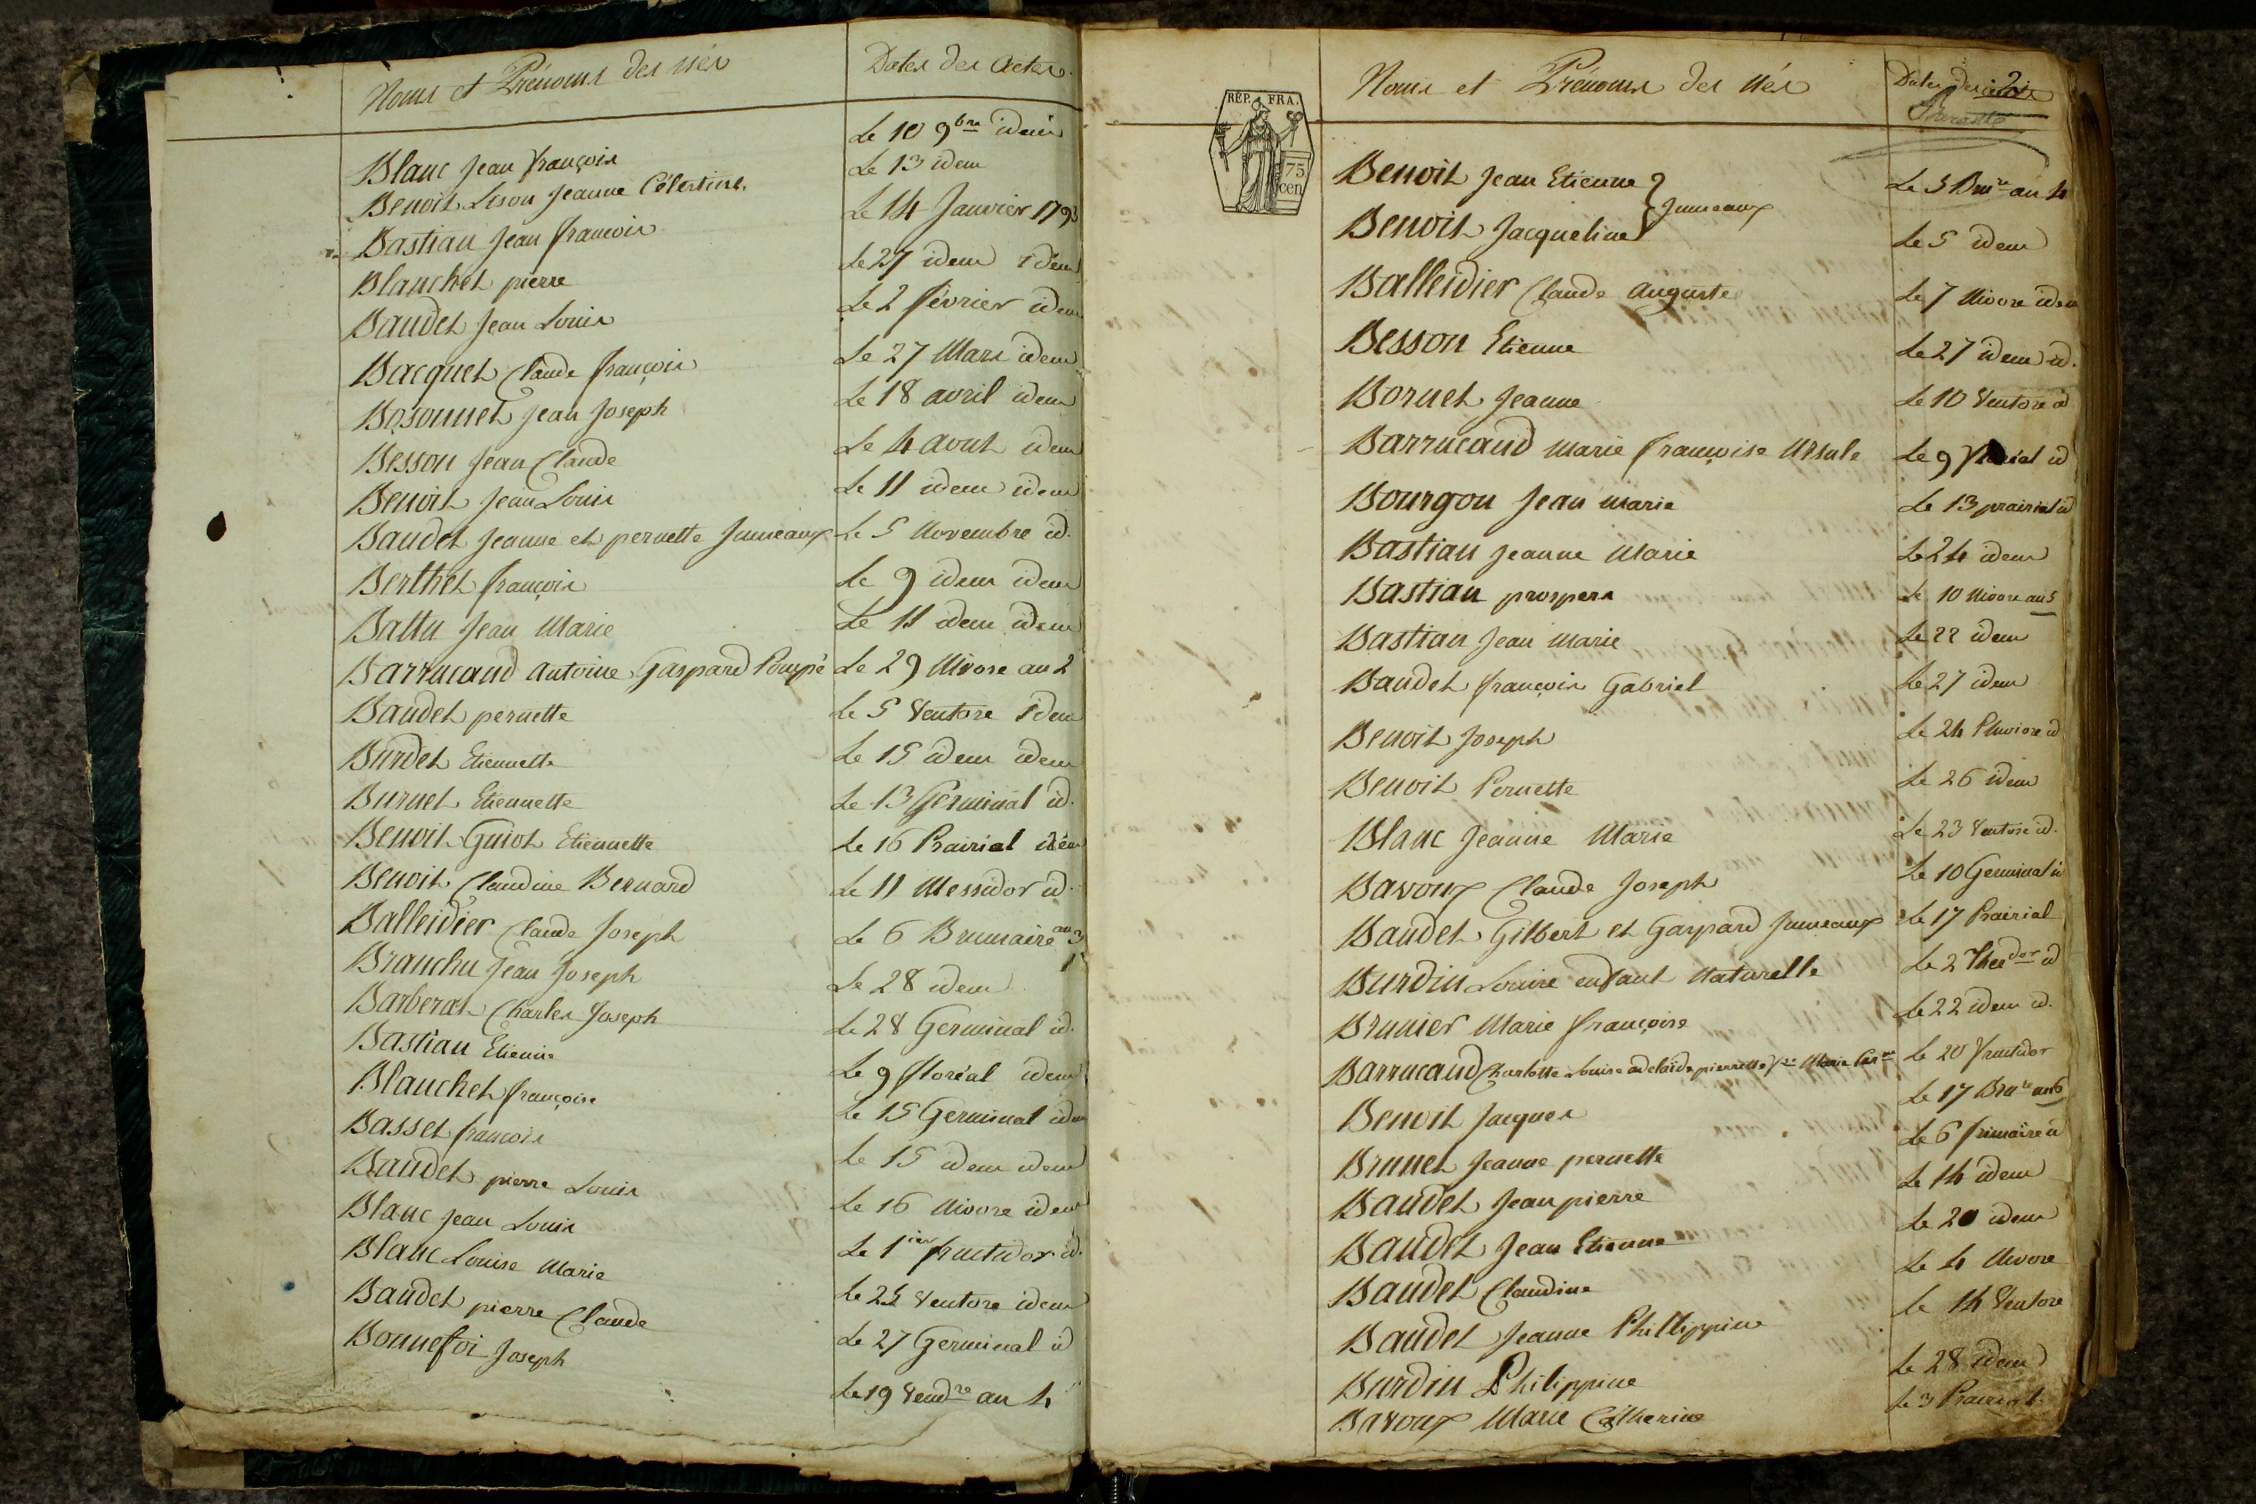 Noms et Prénoms des nés Dates des Actes.
Blanc Jean françois Le 10 9bre idem
Benoit Lison Jeanne Célestine. Le 13 idem
Bastian Jean françois Le 14 Janvier 1793
Blanchet pierre Le 27 idem idem
Baudet Jean Louis Le 2 février idem
Bacquet Claude françois Le 27 Mars idem
Bosonnet Jean Joseph Le 18 avril idem
Besson Jean Claude Le 4 aout idem
Benoit Jean Louis Le 11 idem idem
Baudet Jeanne et pernette Jumeaux Le 5 Novembre id.
Berthet françois Le 9 idem idem
Battu Jean Marie Le 11 idem idem
Barrucand Antoine Gaspard Pompé Le 29 Nivose an 2
Baudet pernette Le 5 Ventose idem
Burdet Etiennette Le 15 idem idem
Burnet Etiennette Le 13 Germinal id.
Benoit Guiot Etiennette Le 16 Prairial idem
Benoit Claudine Bernard Le 11 Messidor id.
Balleidier Claude Joseph Le 6 Brumaire an 3
Branchu Jean Joseph Le 28 idem
Barberat Charles Joseph Le 28 Germinal id.
Bastian Etienne Le 9 floréal idem
Blanchet françoise Le 15 Germinal idem
Basset françois Le 15 idem idem
Baudet pierre Louis Le 16 Nivose idem
Blanc Jean Louis Le 1ier fructidor id.
Blanc Louise Marie Le 25 Ventose idem
Baudet pierre Claude Le 27 Germinal id
Bonnefoi Joseph Le 19 Vendre an 4
Noms et Prénoms des nés Dates des
2
RÉP. FRA.
75
cen
Benoit Jean Etienne Le 5 Bre an 4
Jumeaux
Benoit Jacqueline Le 5 idem
Balleidier Claude Auguste Le 7 Nivose idem
Besson Etienne Le 27 idem id.
Bornet Jeanne Le 10 Ventose id
Barrucand Marie françoise Ursule Le 9 id
Bourgon Jean Marie Le 13 prairial id
Bastian Jeanne Marie Le 24 idem
Bastian prospere Le 10 Nivose an 5
Bastian Jean Marie Le 22 idem
Baudet françois Gabriel Le 27 idem
Benoit Joseph Le 24 Pluviose id
Benoit Pernette Le 26 idem
Blanc Jeanne Marie Le 23 Ventose id.
Bavoux Claude Joseph Le 10 Germinal id
Baudet Gilbert et Gaspard Jumeaux Le 17 Prairial
Burdin Louise enfant Naturelle Le 2 Therdor id
Brunier Marie françoise Le 22 idem id.
Barrucand Charlotte Louise adelaïde pierrette Marie Le 20 fructidor
Benoit Jacques Le 17 Bre an 6
Brunet Jeanne pernette Le 6 frimaire id
Baudet Jean pierre Le 14 idem
Baudet Jean Etienne Le 20 idem
Baudet Claudine Le 4 Nivose
Baudet Jeanne Phillippine Le 14 Ventose
Burdin Philippine Le 28 idem
Bavoux Marie Catherine Le 3 Prairial